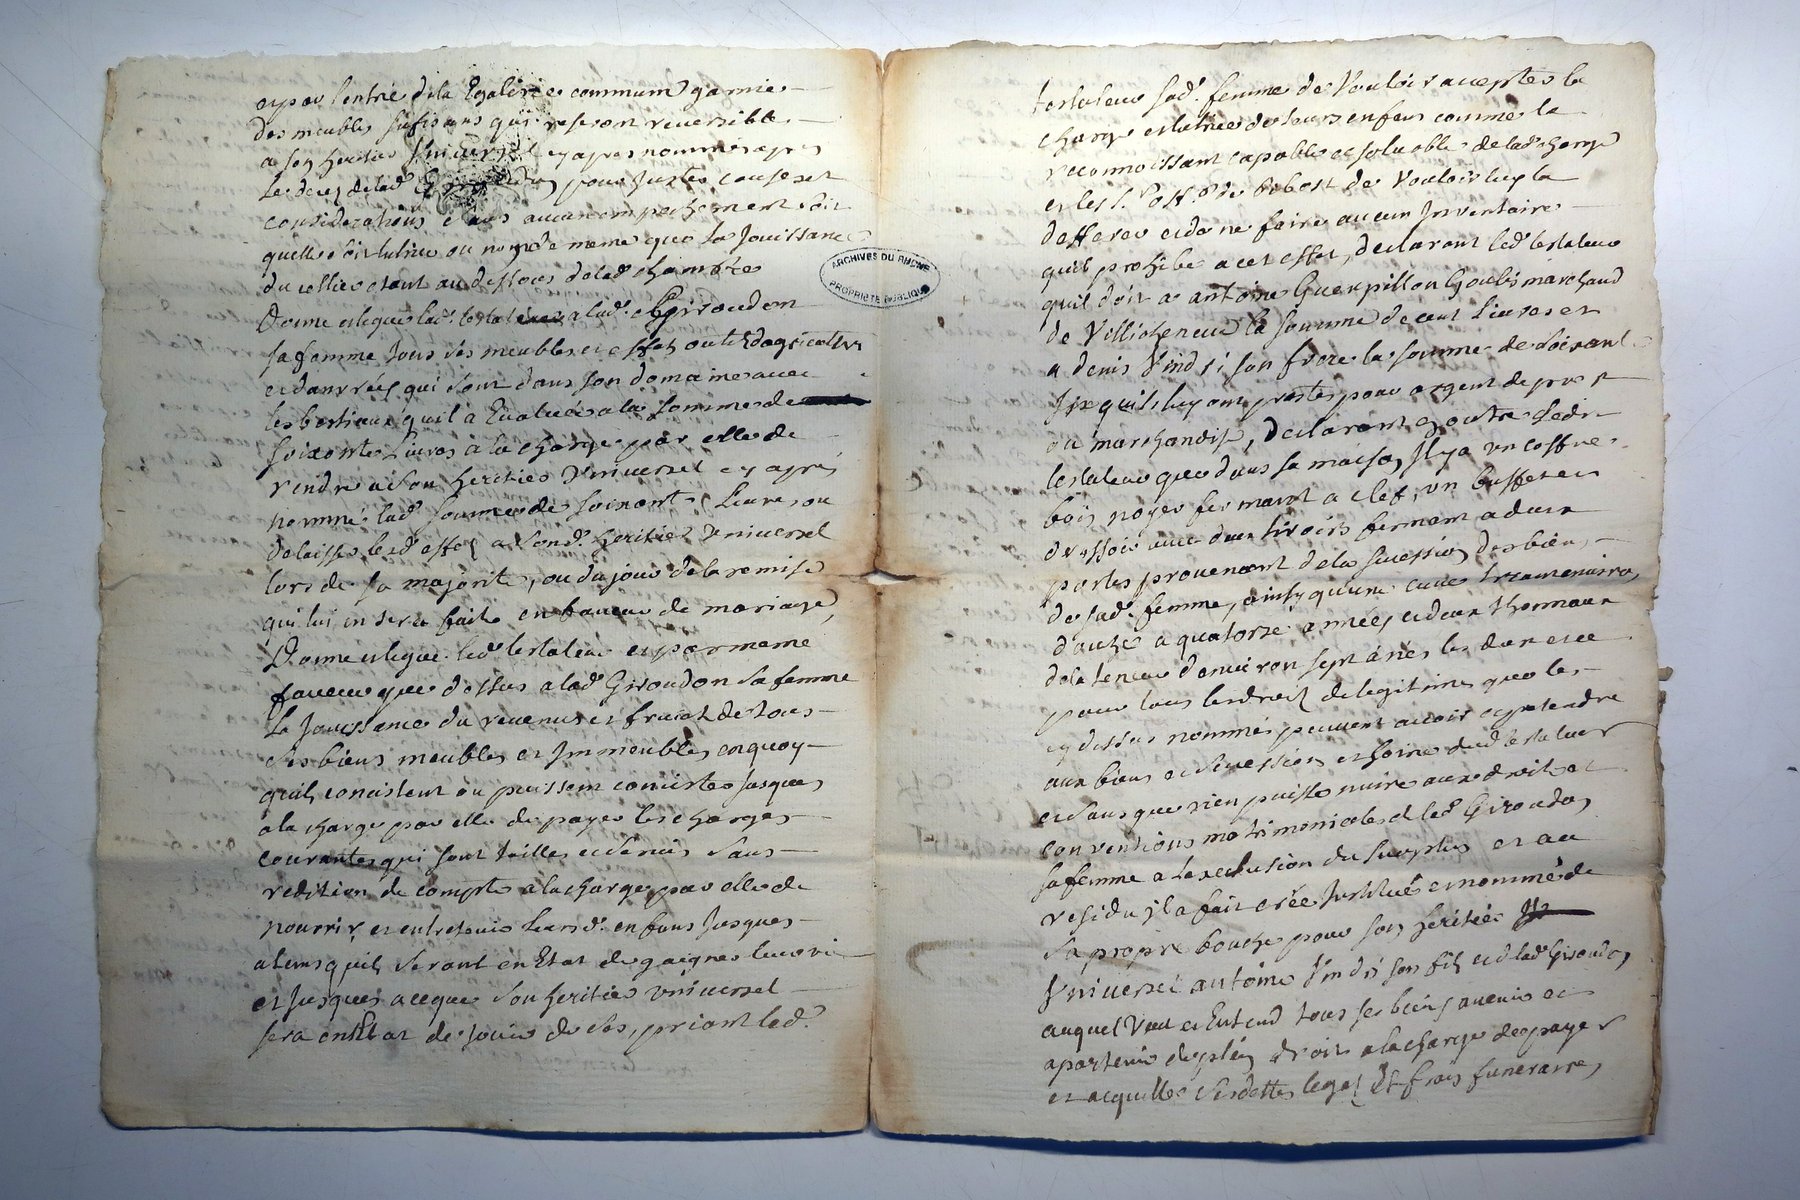 et par l'entré de la Egalerie commune garnie
des meubles sufisans qui reseron reversible
a son heritier Universel cy apres nommé apres
le decez de lad. pour Justes causes et
considerations sans aucun empechement soit
quelle soit tutrice ou non de meme que la Jouissance
du cellier etant au dessous de lad. chambre
Donne et legue led. testateur a lad. Giroudon
sa femme tous ses meubles et effets outils dagriculture
et danrées qui sont dans son domaine avec
les bestiaux quil a Evalués a la somme de
soixante Livres à la charge par elle de
rendre a son heritier Universel cy aprés
nommé lad. somme de soixante Livres ou
delaisser lesd. effets a sond. heritier Universel
lors de sa majorité, ou du jour de la remise
qui lui en sera faite en faveur de mariage,
Donne et legue led. testateur et par meme
faveur que dessus a lad. Giroudon sa femme
La Jouissance du revenus et fruict de tous
ses biens meubles et Immeubles en quoy
quils consistent ou puissent consister Jusques
a la charge par elle de payer les charges
courantes qui sont tailles et servis sans
redition de compte a la charge par elle de
nourrir et entretenir leursd. enfans Jusques
a tems quils seront en Etat de gaigner leur vie
et Jusques a ceque son heritier universel
sera en Etat de Jouir de ses, priant led.
ARCHIVES DU RHONE
PROPRIETE PUBLIQUE
testateur sad. femme de vouloir accepter la
charge et tutrice de leurs enfans comme la
reconnoissant capable et soluable de lad. charge
et les de vouloir luy la
defferer et de ne faire aucun Inventaire
quil prohibe a cet effet, declarant led. testateur
quil doit a antoine Guerpillon marchand
de Villicheneve la somme de cent Livres et
a denis Vindri son frere la somme de soixante
six quils luy ont prestés pour argent de prest
ou marchandise, declarant en outre ledit
testateur que dans sa maison Il y a un coffre
bois noyer fermant a clef, un buffet et
dressoir avec deux tiroirs fermant a deux
portes provenant de la succession des biens
de sad. femme, ainsy qu'une cuve
a quatorse années et deux thonneaux
de la teneur d'environ sept anées les deux et ce
pour tous les droits de legitime que les
cy dessus nommés peuvent avoir et pretendre
aux biens et succession et hoirie dud. testateur
et sans que rien puisse nuire aux droits et
conventions matrimoniales de lad. Giroudon
sa femme a lexclusion du surplus et au
residu Il a fait crée Institué et nommé de
sa propre bouche pour son heritié
Universel antoine Vindri son fils et de lad. Giroudon
auquel Veut et Entend tous ses biens avenir et
apartenir de plein droit a la charge de payer
et acquitter ses dettes legat Et frais funeraire,